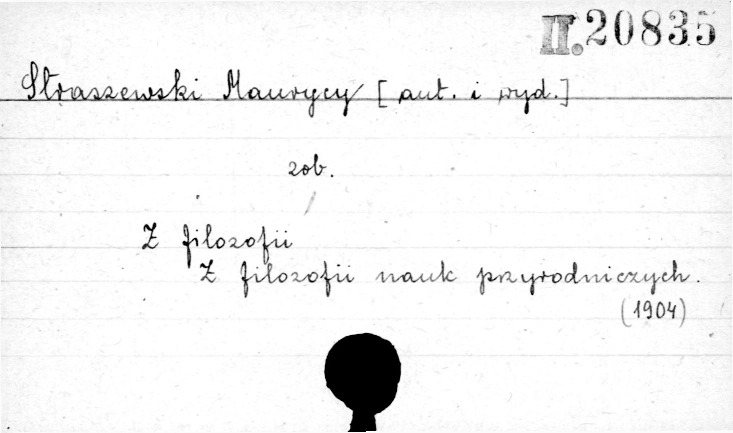 II.20835
Straszewski Maurycy [aut. i wyd.]
zob.
Z filozofii
Z filozofii nauk przyrodniczych.
(1904)